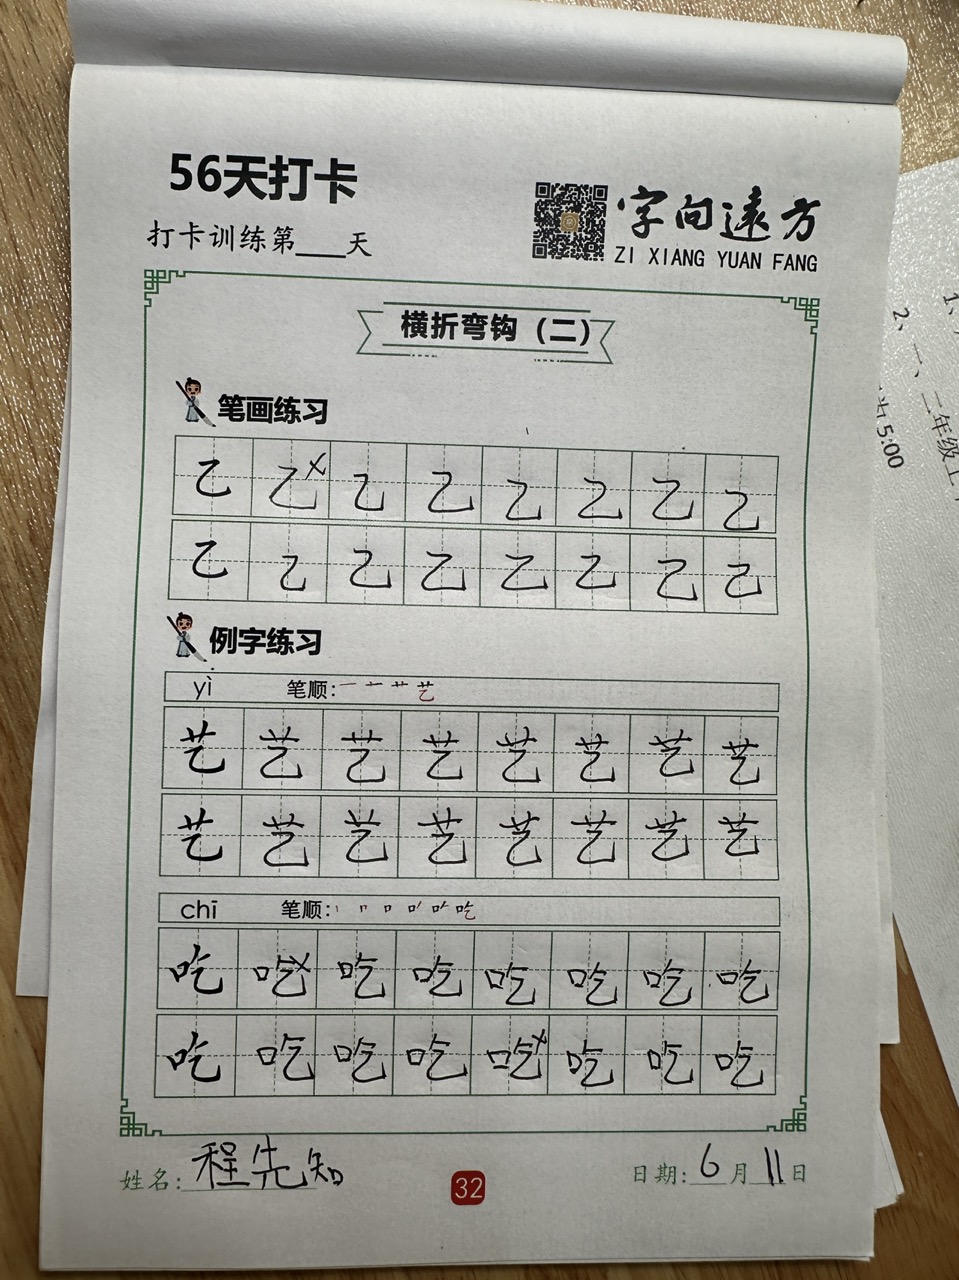 56天打卡
打卡训练第___天
字向远方
ZI XIANG YUAN FANG
横折弯钩（二）
笔画练习
乙 乙 乙 乙 乙 乙 乙 乙
乙 乙 乙 乙 乙 乙 乙 乙
例字练习
yì 笔顺: 艺
艺 艺 艺 艺 艺 艺 艺 艺
艺 艺 艺 艺 艺 艺 艺 艺
chī 笔顺: 吃
吃 吃 吃 吃 吃 吃 吃 吃
吃 吃 吃 吃 吃 吃 吃 吃
姓名: 程先知
32
日期: 6月11日
1、
2、一、二年级上
5:00